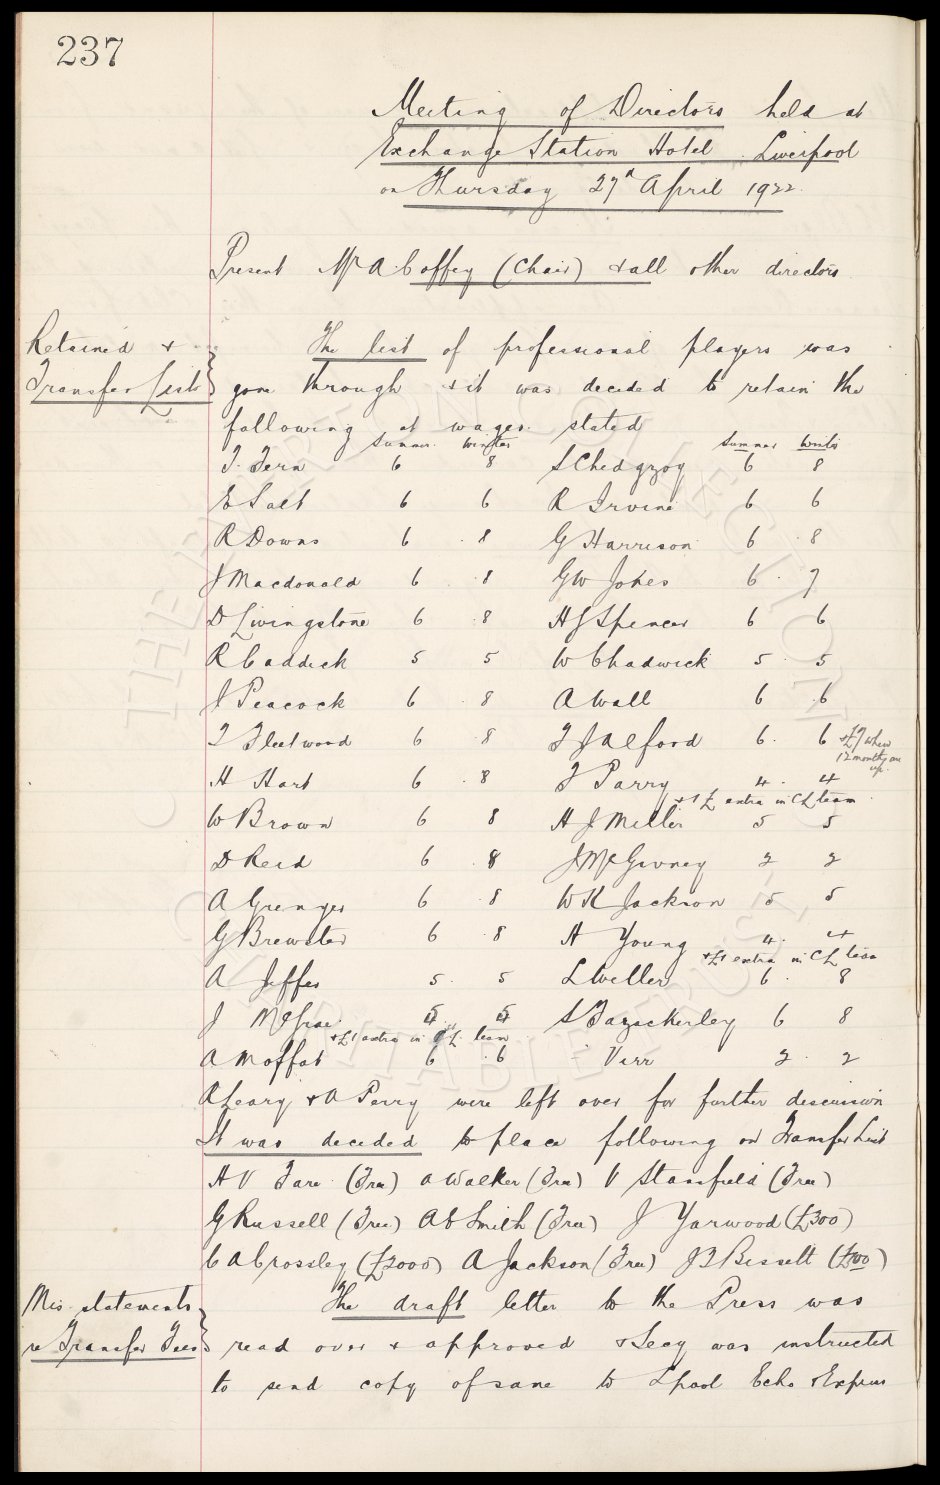 237
Meeting of Directors held at
Exchange Station Hotel Liverpool
on Thursday 27th April 1922.
Present Mr A Coffey (Chair) & all other directors
Retained &
Transfer List
The list of professional players was
gone through & it was decided to retain the
following at wages stated
Summer Winter Summer Winter
T. Fern 6 8 S Chedgzoy 6 8
E Salt 6 6 R Irvine 6 6
R Downs 6 8 G Harrison 6 8
J Macdonald 6 8 G W Jones 6 7
D Livingstone 6 8 H J Spencer 6 6
R Caddick 5 5 W Chadwick 5 5
J Peacock 6 8 A Wall 6 6
T Fleetwood 6 8 F J Alford 6 6 & £7 when 12 months are up.
H Hart 6 8 F Parry 4 4
& 1£ extra in CL team
W Brown 6 8 H J Miller 5 5
D Reid 6 8 J McGivney 2 2
A Grenyer 6 8 W R Jackson 5 5
G Brewster 6 8 H Young 4 4
& £1 extra in CL team
A Jeffs 5 5 L Weller 6 8
J McGrae 4 4 S Fazackerley 6 8
& £1 extra in CL team
A Moffat 6 6 Virr 2 2
A Leary & A Perry were left over for further discussion
It was decided to place following on Transfer List
H V Fare (Free) A Walker (Free) V Stansfield (Free)
G Russell (Free) A C Smith (Free) J Yarwood (£300)
C A Crossley (£2000) A Jackson (Free) J T Bissett (£500)
Mis-statements
re Transfer Fees
The draft letter to the Press was
read over & approved & Secy was instructed
to send copy of same to Lpool Echo & Express
THE EVERTON COLLECTION
CHARITABLE TRUST